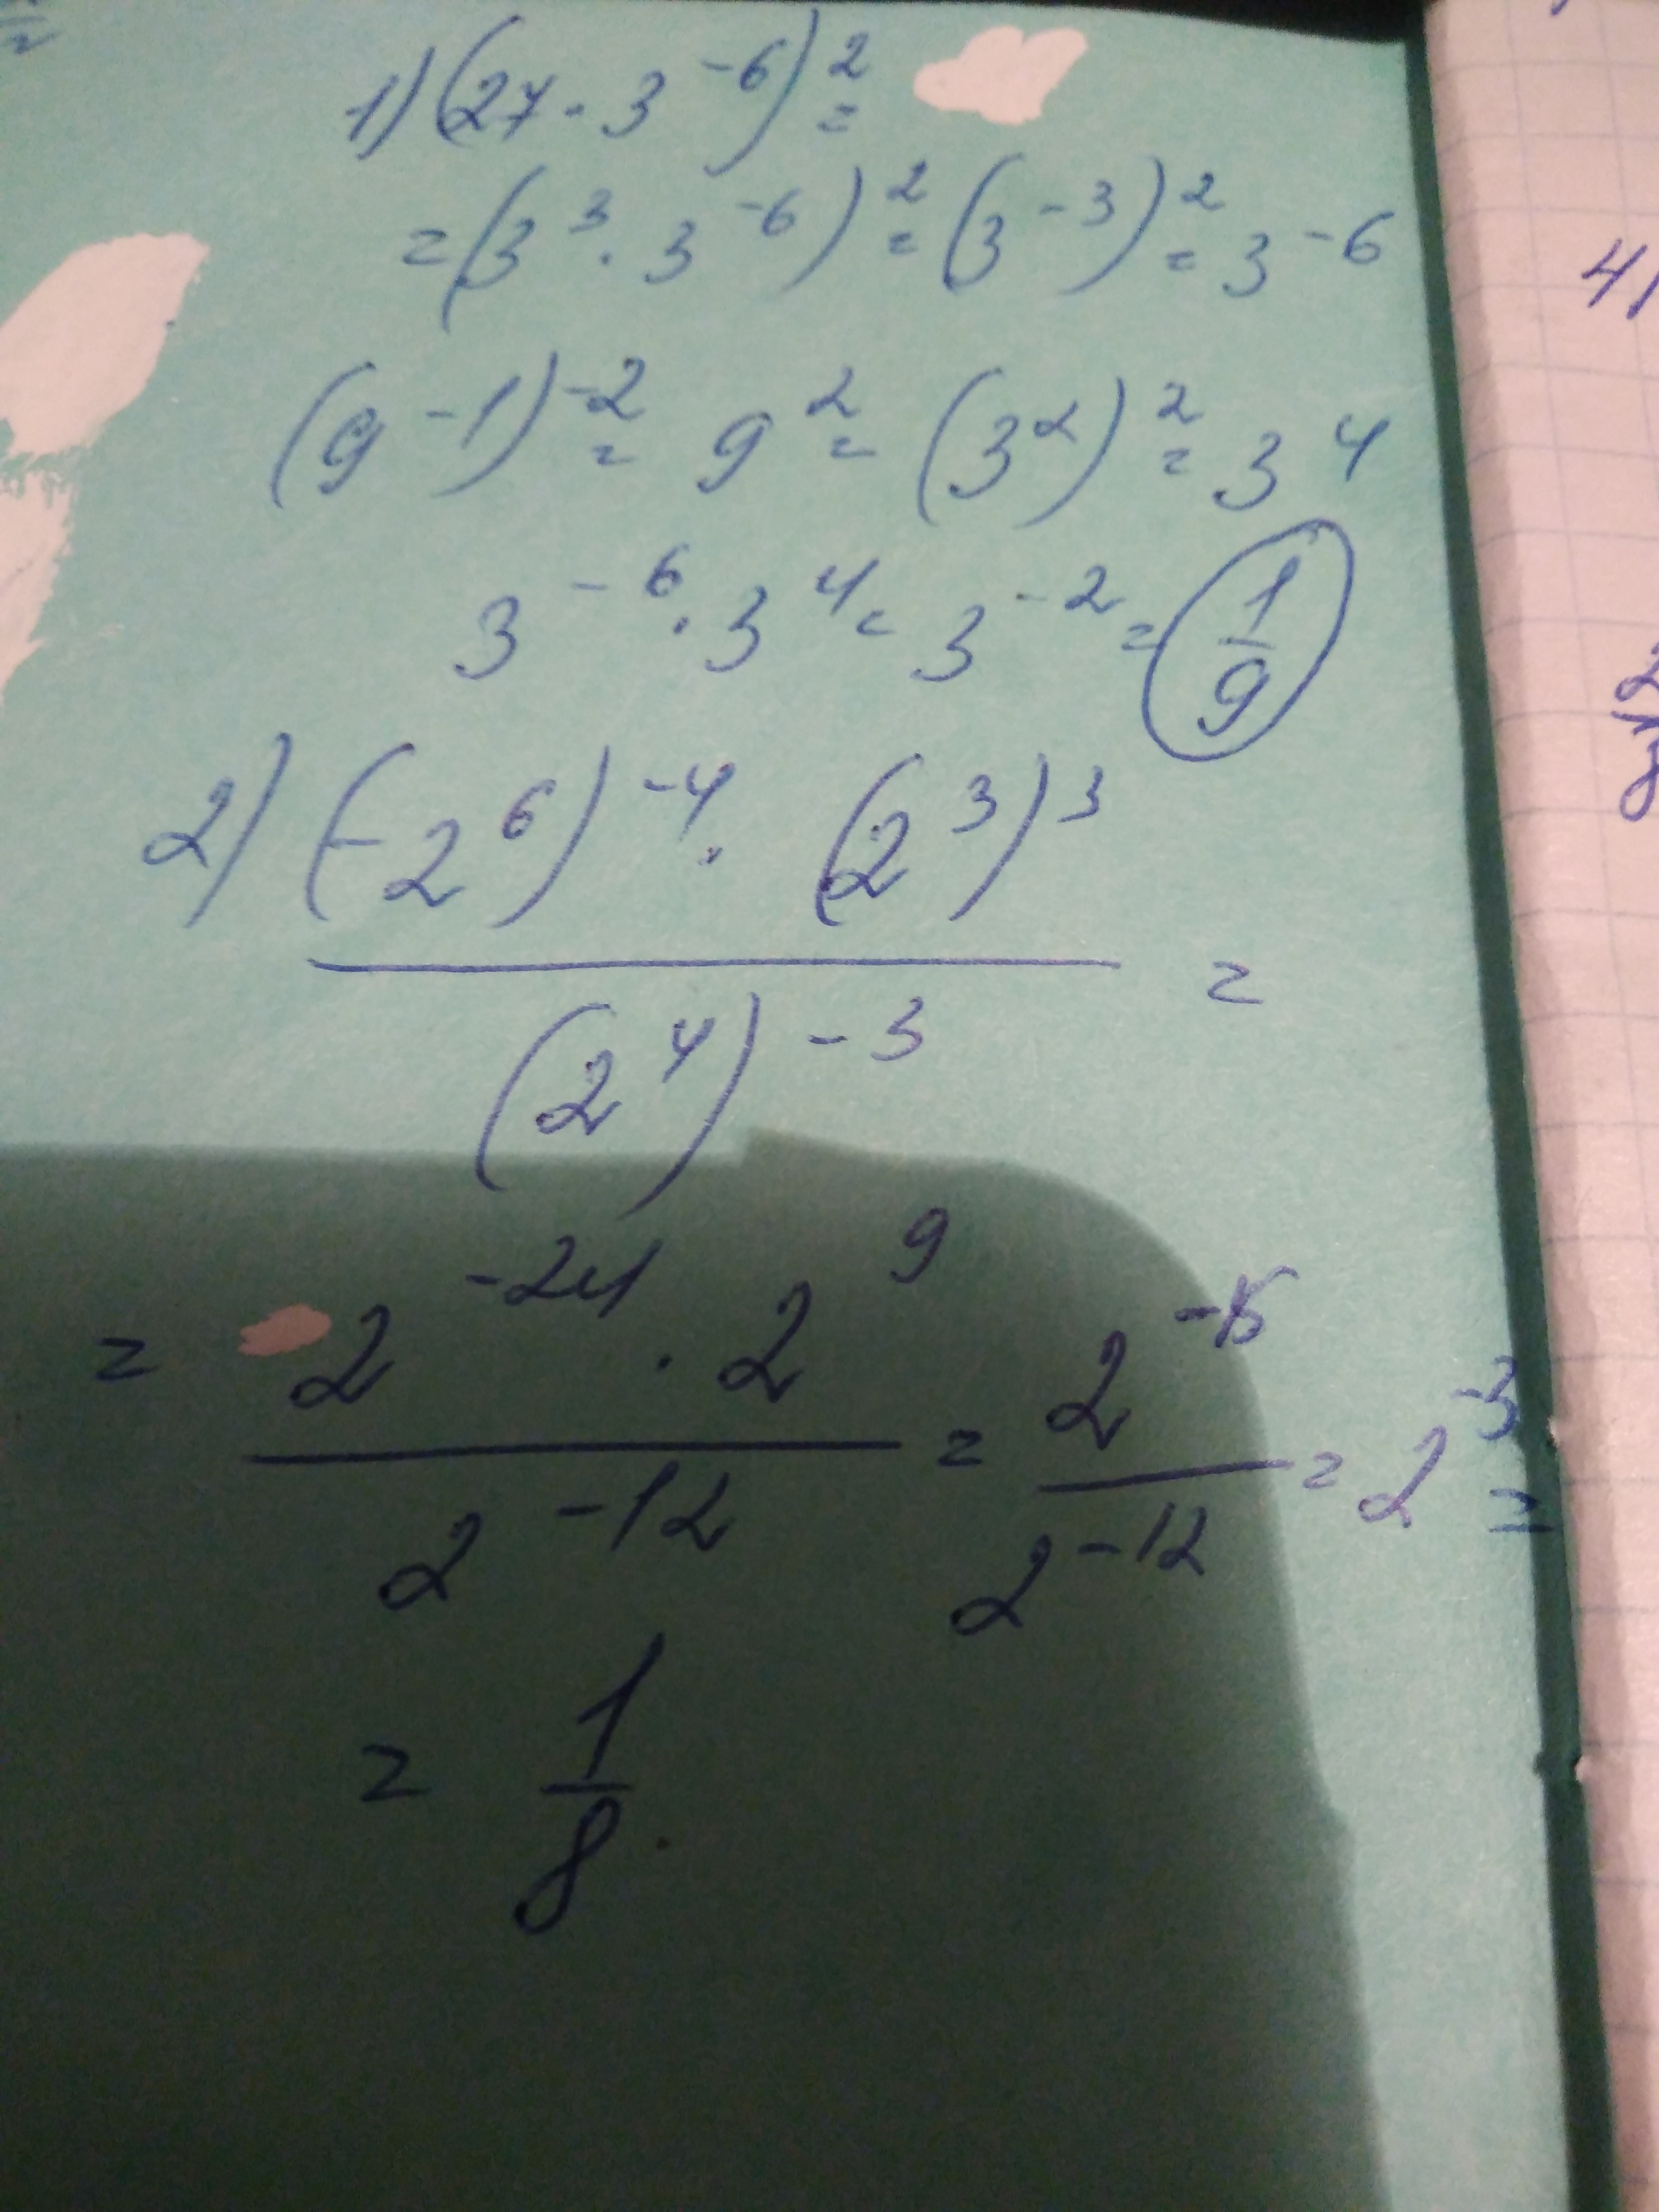 1) (27 · 3^-6)^2 =
= (3^3 · 3^-6)^2 = (3^-3)^2 = 3^-6
(9^-1)^-2 = 9^2 = (3^2)^2 = 3^4
3^-6 · 3^4 = 3^-2 = 1/9
2) (-2^6)^-4 · (2^3)^3 / (2^4)^-3 =
= 2^-24 · 2^9 / 2^-12 = 2^-15 / 2^-12 = 2^-3 =
= 1/8.
4)
2